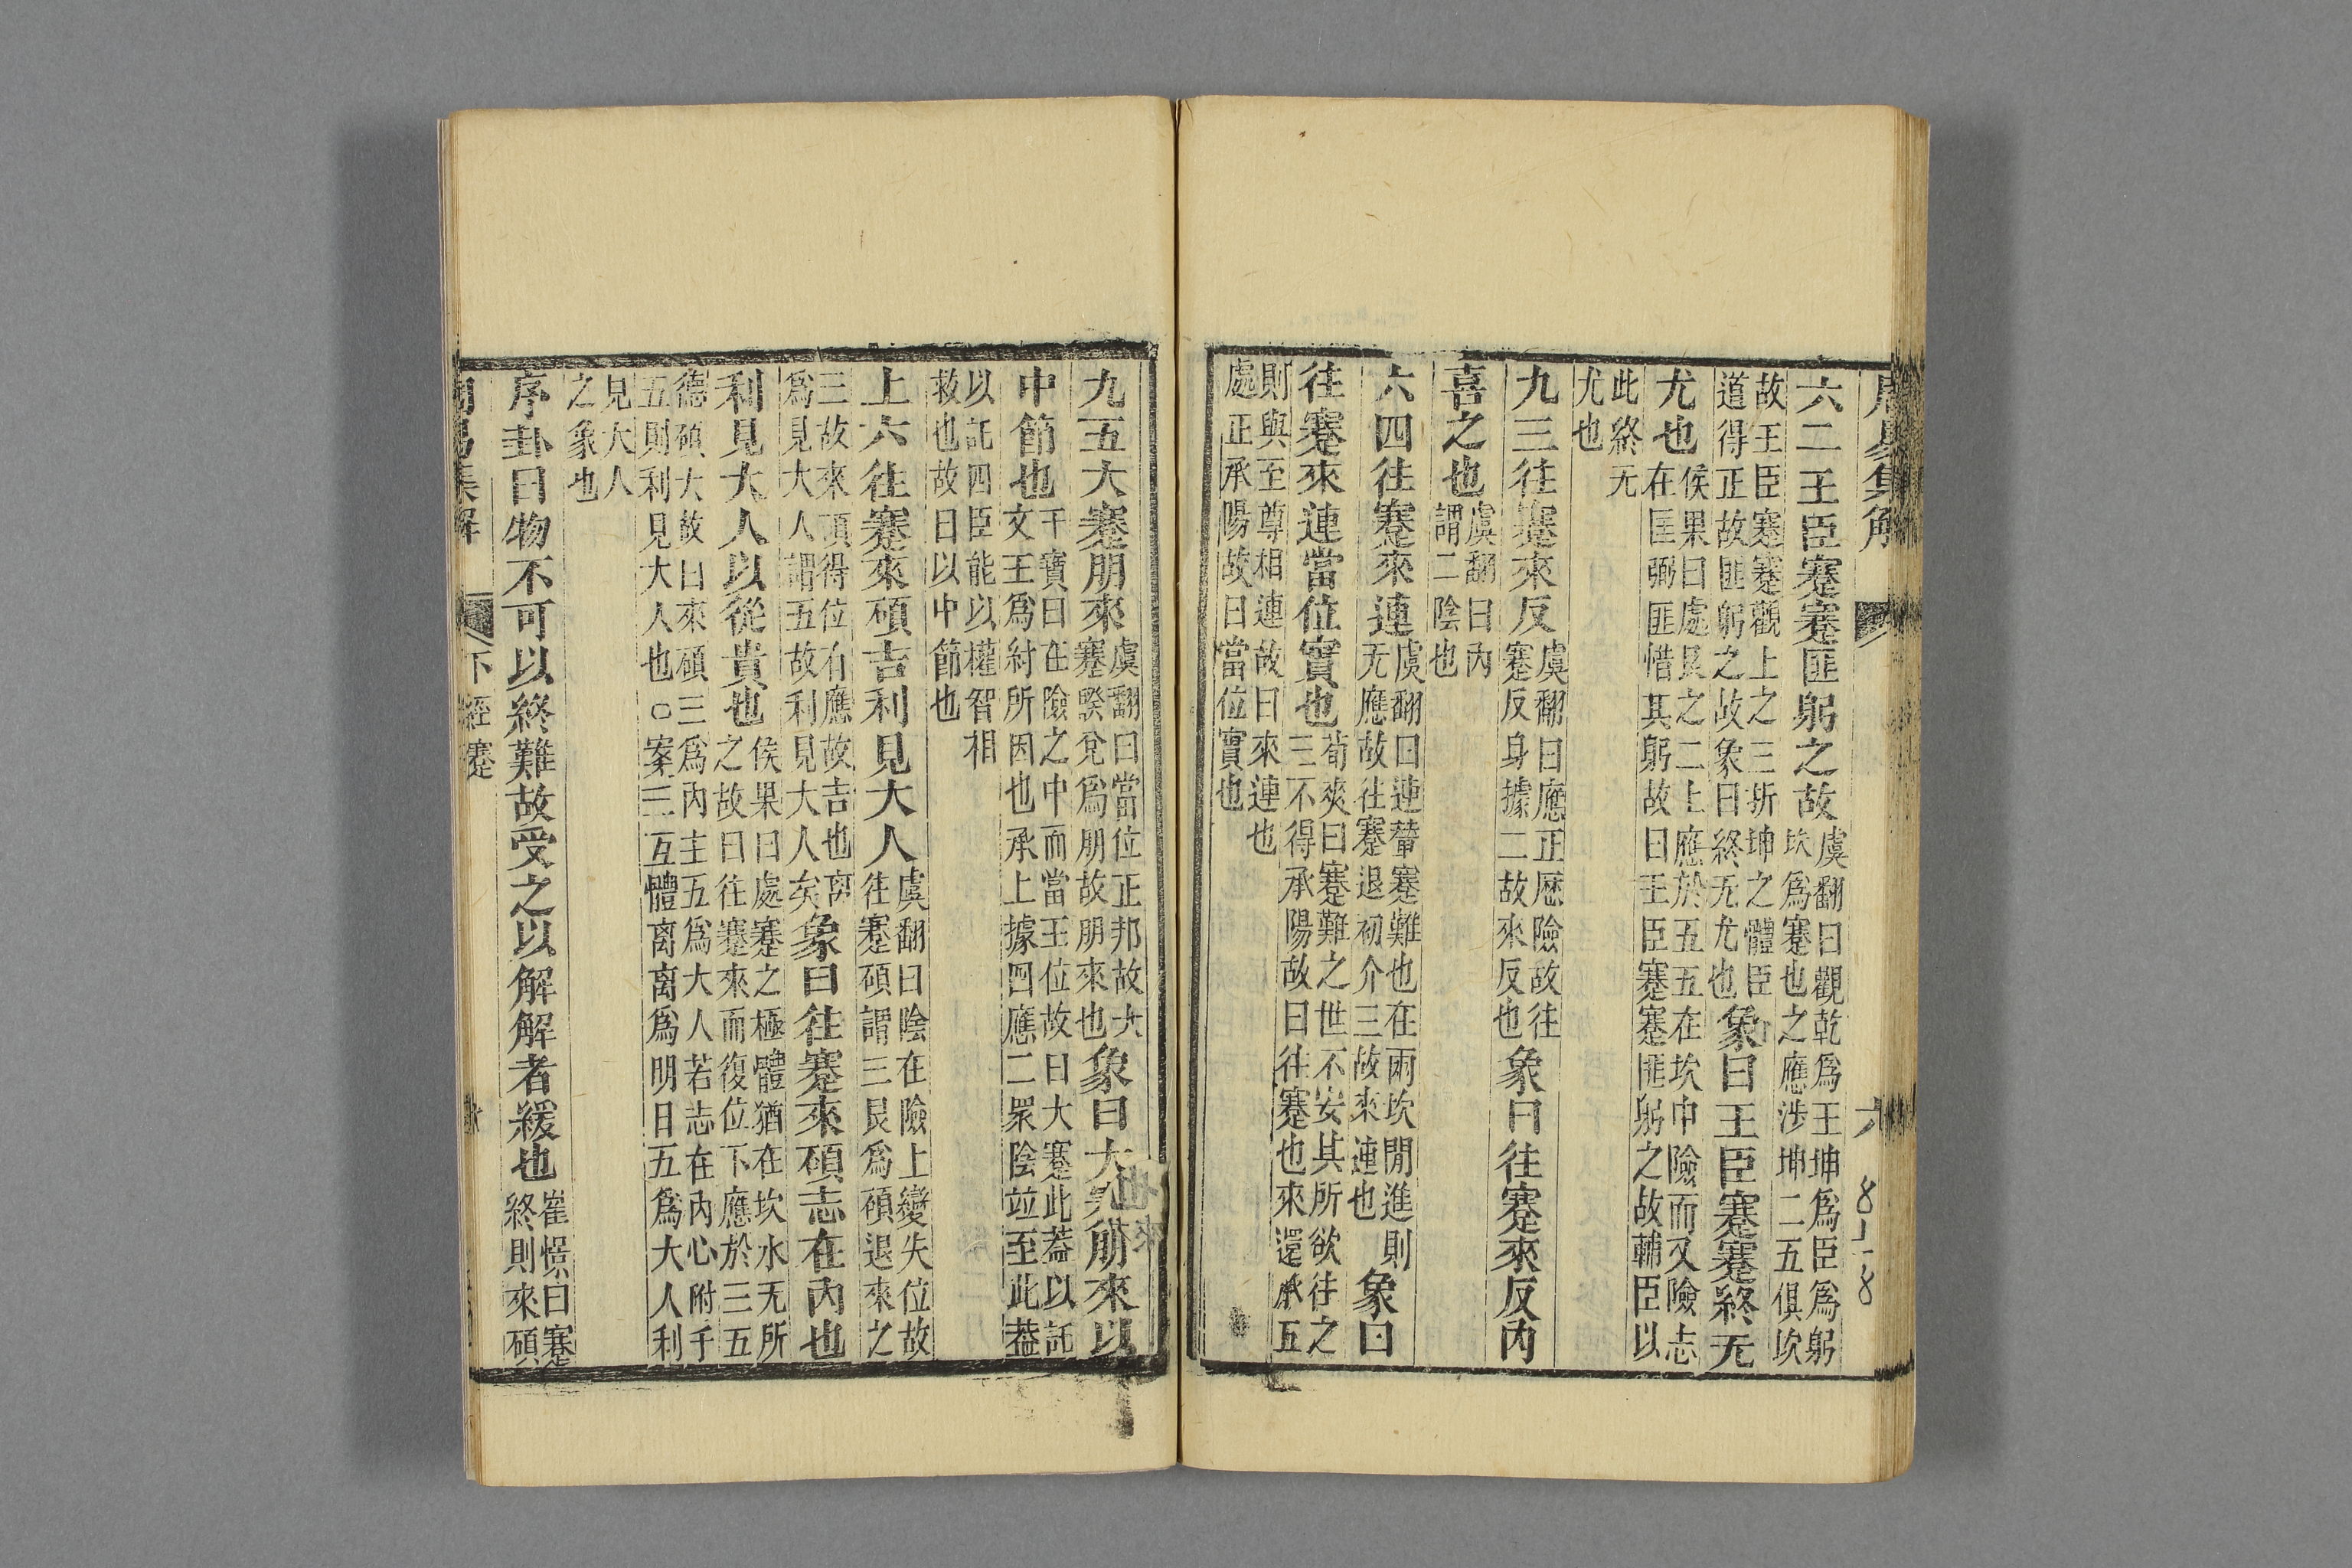 周易集解
六
六二王臣蹇蹇匪躬之故
虞翻曰觀乾爲王坤爲臣爲躬
坎爲蹇也之應涉坤二五俱坎
故王臣蹇蹇觀上之三折坤之體臣
道得正故匪躬之故象曰終无尤也
象曰王臣蹇蹇終无
尤也
侯果曰處艮之二上應於五五在坎中險而又險志
在匡弼匪惜其躬故曰王臣蹇蹇匪躬之故輔臣以
此終无
尤也
九三往蹇來反
虞翻曰應正歷險故往
蹇反身據二故來反也
象曰往蹇來反內
喜之也
虞翻曰內
謂二陰也
六四往蹇來連
虞翻曰連輦蹇難也在兩坎閒進則
无應故往蹇退初介三故來連也
象曰
往蹇來連當位實也
荀爽曰蹇難之世不安其所欲往之
三不得承陽故曰往蹇也來還承五
則與至尊相連故曰來連也
處正承陽故曰當位實也
九五大蹇朋來
虞翻曰當位正邦故大
蹇睽兌爲朋故朋來也
象曰大蹇朋來以
中節也
干寶曰在險之中而當王位故曰大蹇此蓋以託
文王爲紂所因也承上據四應二眾陰竝至此葢
以託四臣能以權智相
救也故曰以中節也
上六往蹇來碩吉利見大人
虞翻曰陰在險上變失位故
往蹇碩謂三艮爲碩退來之
三故來碩得位有應故吉也离
爲見大人謂五故利見大人矣
象曰往蹇來碩志在內也
利見大人以從貴也
侯果曰處蹇之極體猶在坎水无所
之故曰往蹇來而復位下應於三五
德碩大故曰來碩三爲內主五爲大人若志在內心附于
五則利見大人也○案三互體离离爲明日五爲大人利
見大人
之象也
序卦曰物不可以終難故受之以解解者緩也
崔憬曰蹇
終則來碩
周易集解
下經蹇